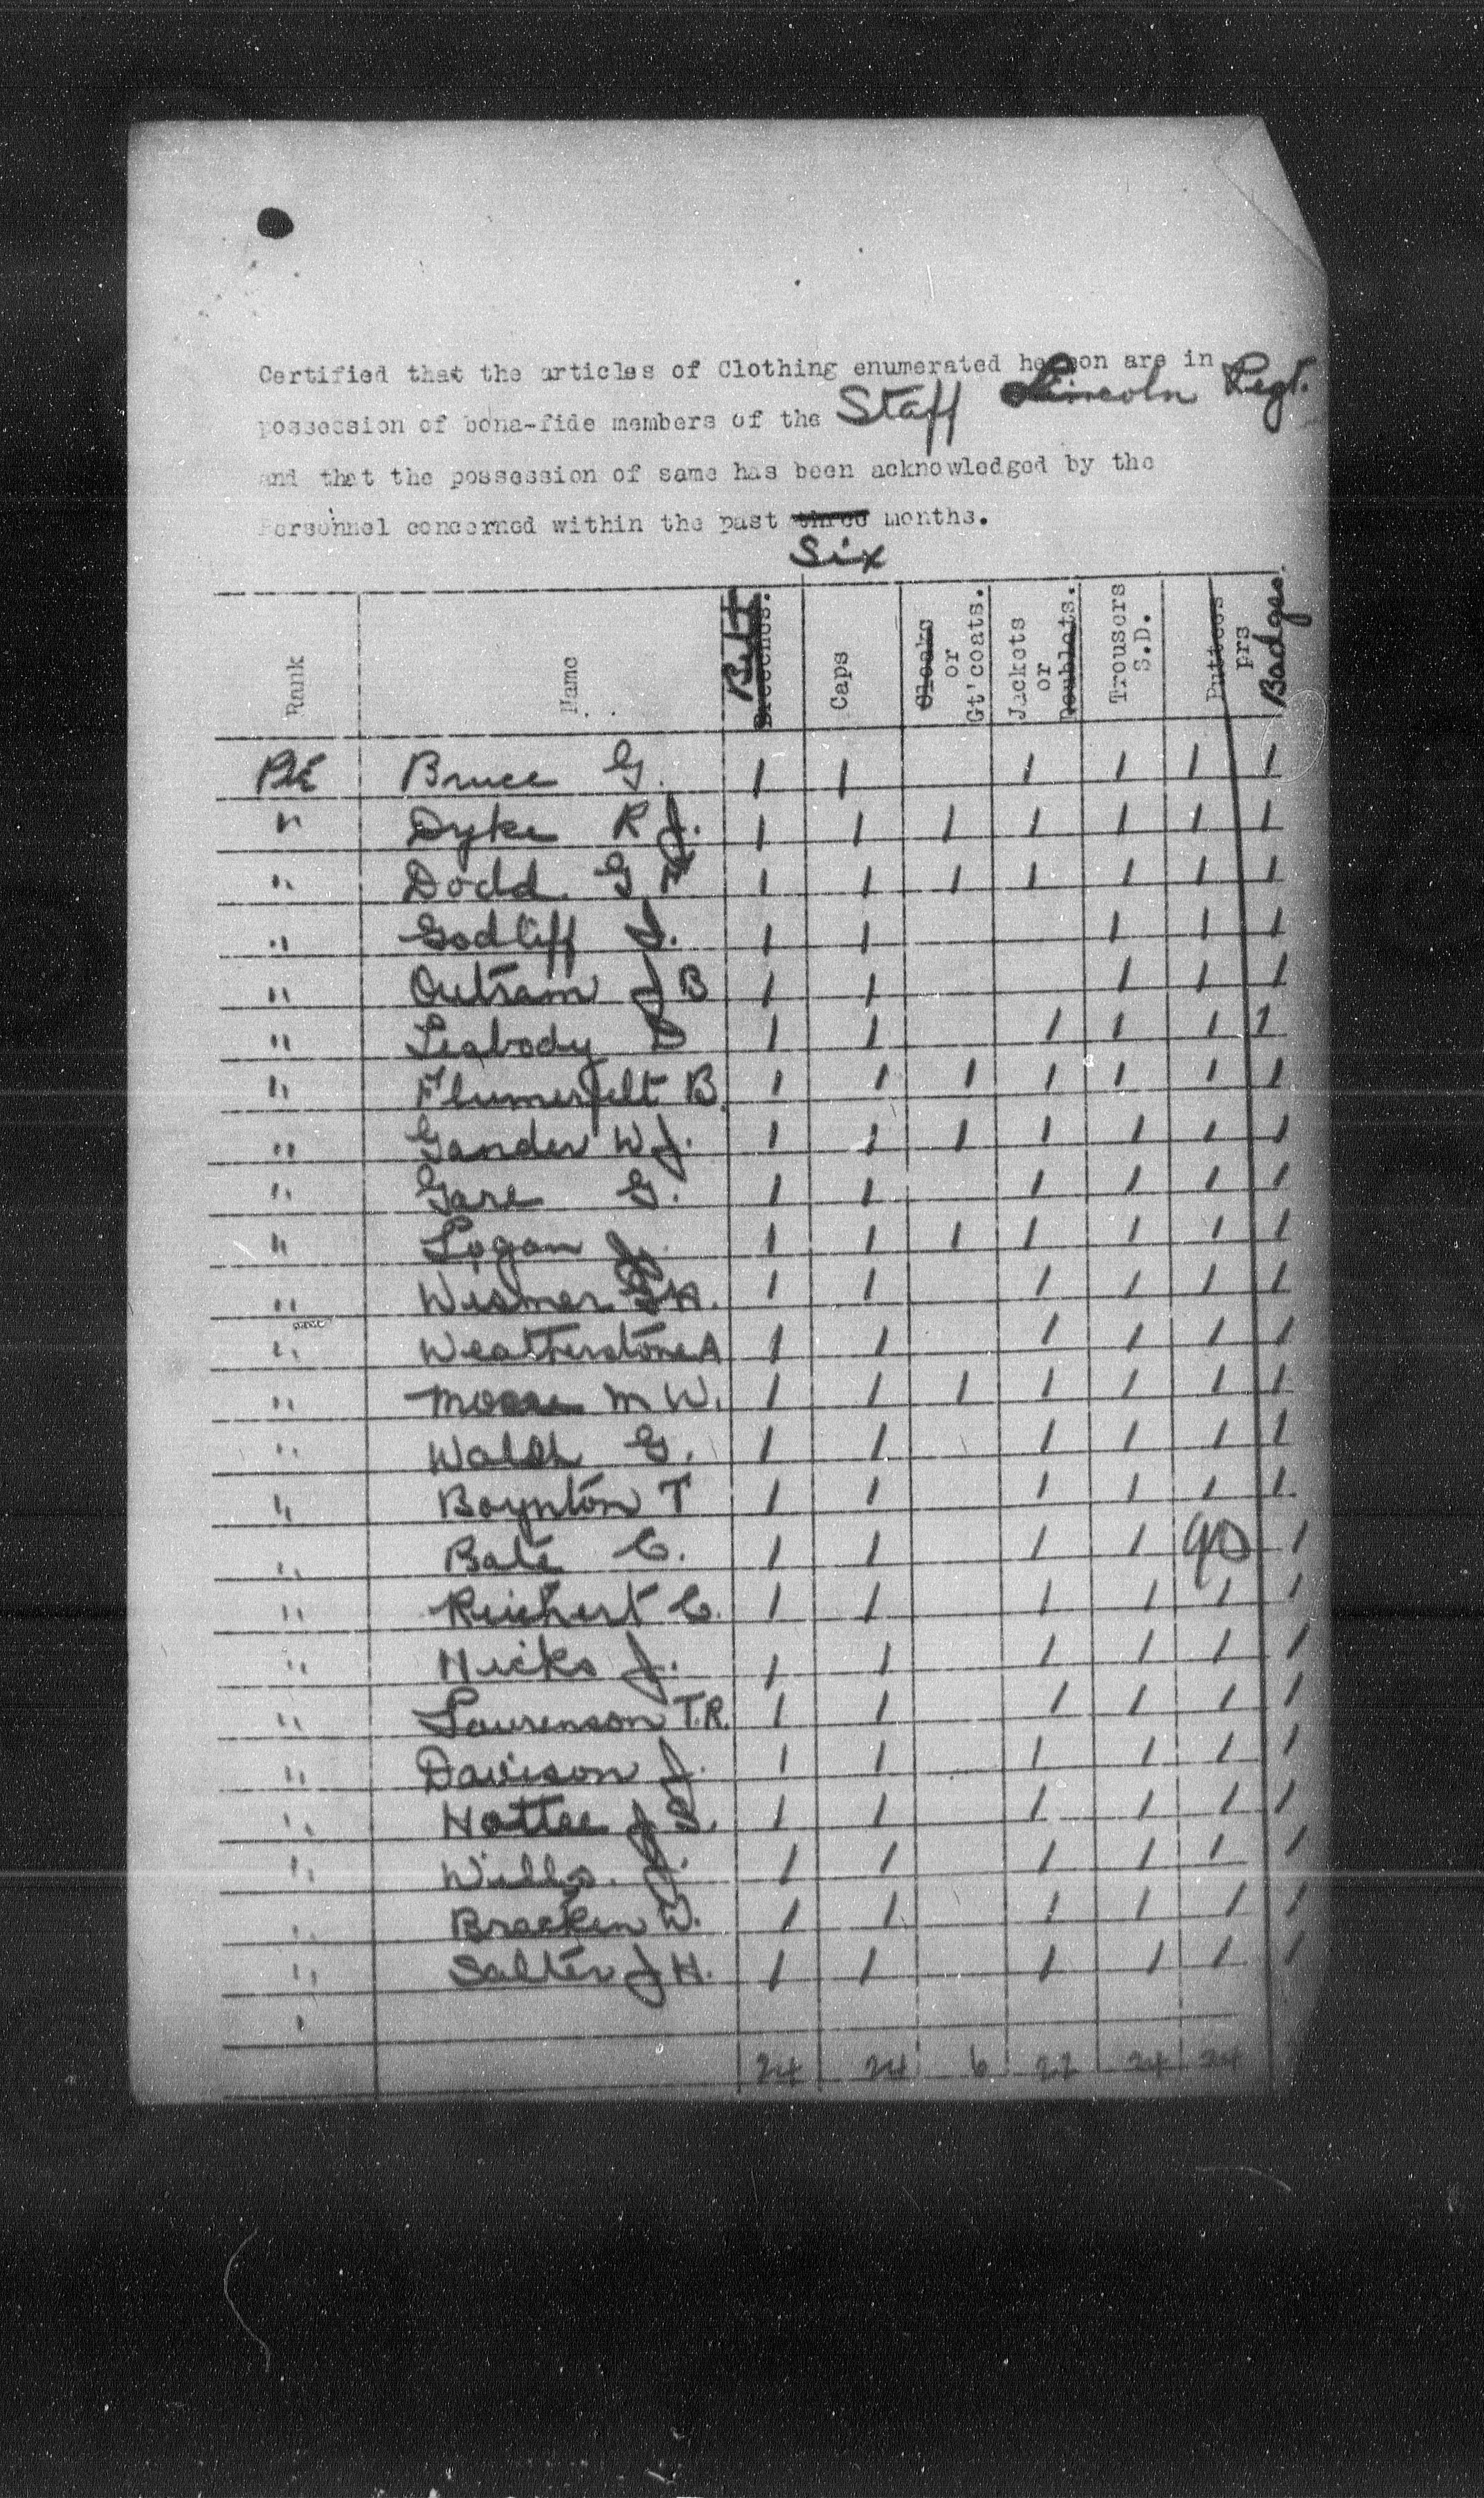 Certified that the articles of Clothing enumerated hereon are in
possession of bona-fide members of the Staff Lincoln Regt.
and that the possession of same has been acknowledged by the
Personnel concerned within the past three months.
Six
Rank Name Breeches. Belt Caps Cloaks or Gt'coats. Jackets or Doublets. Trousers S.D. Puttees prs Badges.
Pte Bruce G. 1 1 1 1 1 1
" Dyke R J. 1 1 1 1 1 1 1
" Dodd G F 1 1 1 1 1 1 1
" Godliff S. 1 1 1 1 1
" Outram J B 1 1 1 1 1
" Leabody D 1 1 1 1 1 1
" Flumerfelt B. 1 1 1 1 1 1 1
" Gander W J. 1 1 1 1 1 1 1
" Gare G. 1 1 1 1 1 1
" Logan J. 1 1 1 1 1 1 1
" Wismer H. 1 1 1 1 1 1
" Weatherstone A 1 1 1 1 1 1
" Moore M W. 1 1 1 1 1 1 1
" Walsh G. 1 1 1 1 1 1
" Boynton T 1 1 1 1 1 1
" Bate C. 1 1 1 1 1
" Reichert C. 1 1 1 1 1 1
" Hicks J. 1 1 1 1 1 1
" Laurenson T.R. 1 1 1 1 1 1
" Davison J. 1 1 1 1 1 1
" Hottee J S. 1 1 1 1 1 1
" Wills. J. 1 1 1 1 1 1
" Bracken W. 1 1 1 1 1 1
" Salter J H. 1 1 1 1 1 1
"
24 24 6 22 24 24